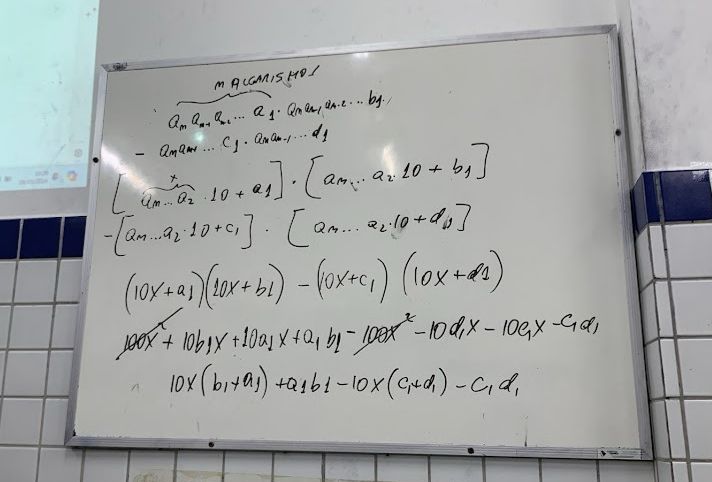 m ALGARISMOS
aₘ aₘ₋₁ aₘ₋₂ ... a₁ · aₘ aₘ₋₁ aₘ₋₂ ... b₁
- aₘ aₘ₋₁ ... c₁ · aₘ aₘ₋₁ ... d₁
x
[aₘ ... a₂ · 10 + a₁] · [aₘ ... a₂ · 10 + b₁]
-[aₘ ... a₂ · 10 + c₁] · [aₘ ... a₂ · 10 + d₁]
(10x + a₁)(10x + b₁) - (10x + c₁) (10x + d₁)
100x² + 10b₁x + 10a₁x + a₁b₁ - 100x² - 10d₁x - 10c₁x - c₁d₁
10x(b₁ + a₁) + a₁b₁ - 10x(c₁ + d₁) - c₁d₁